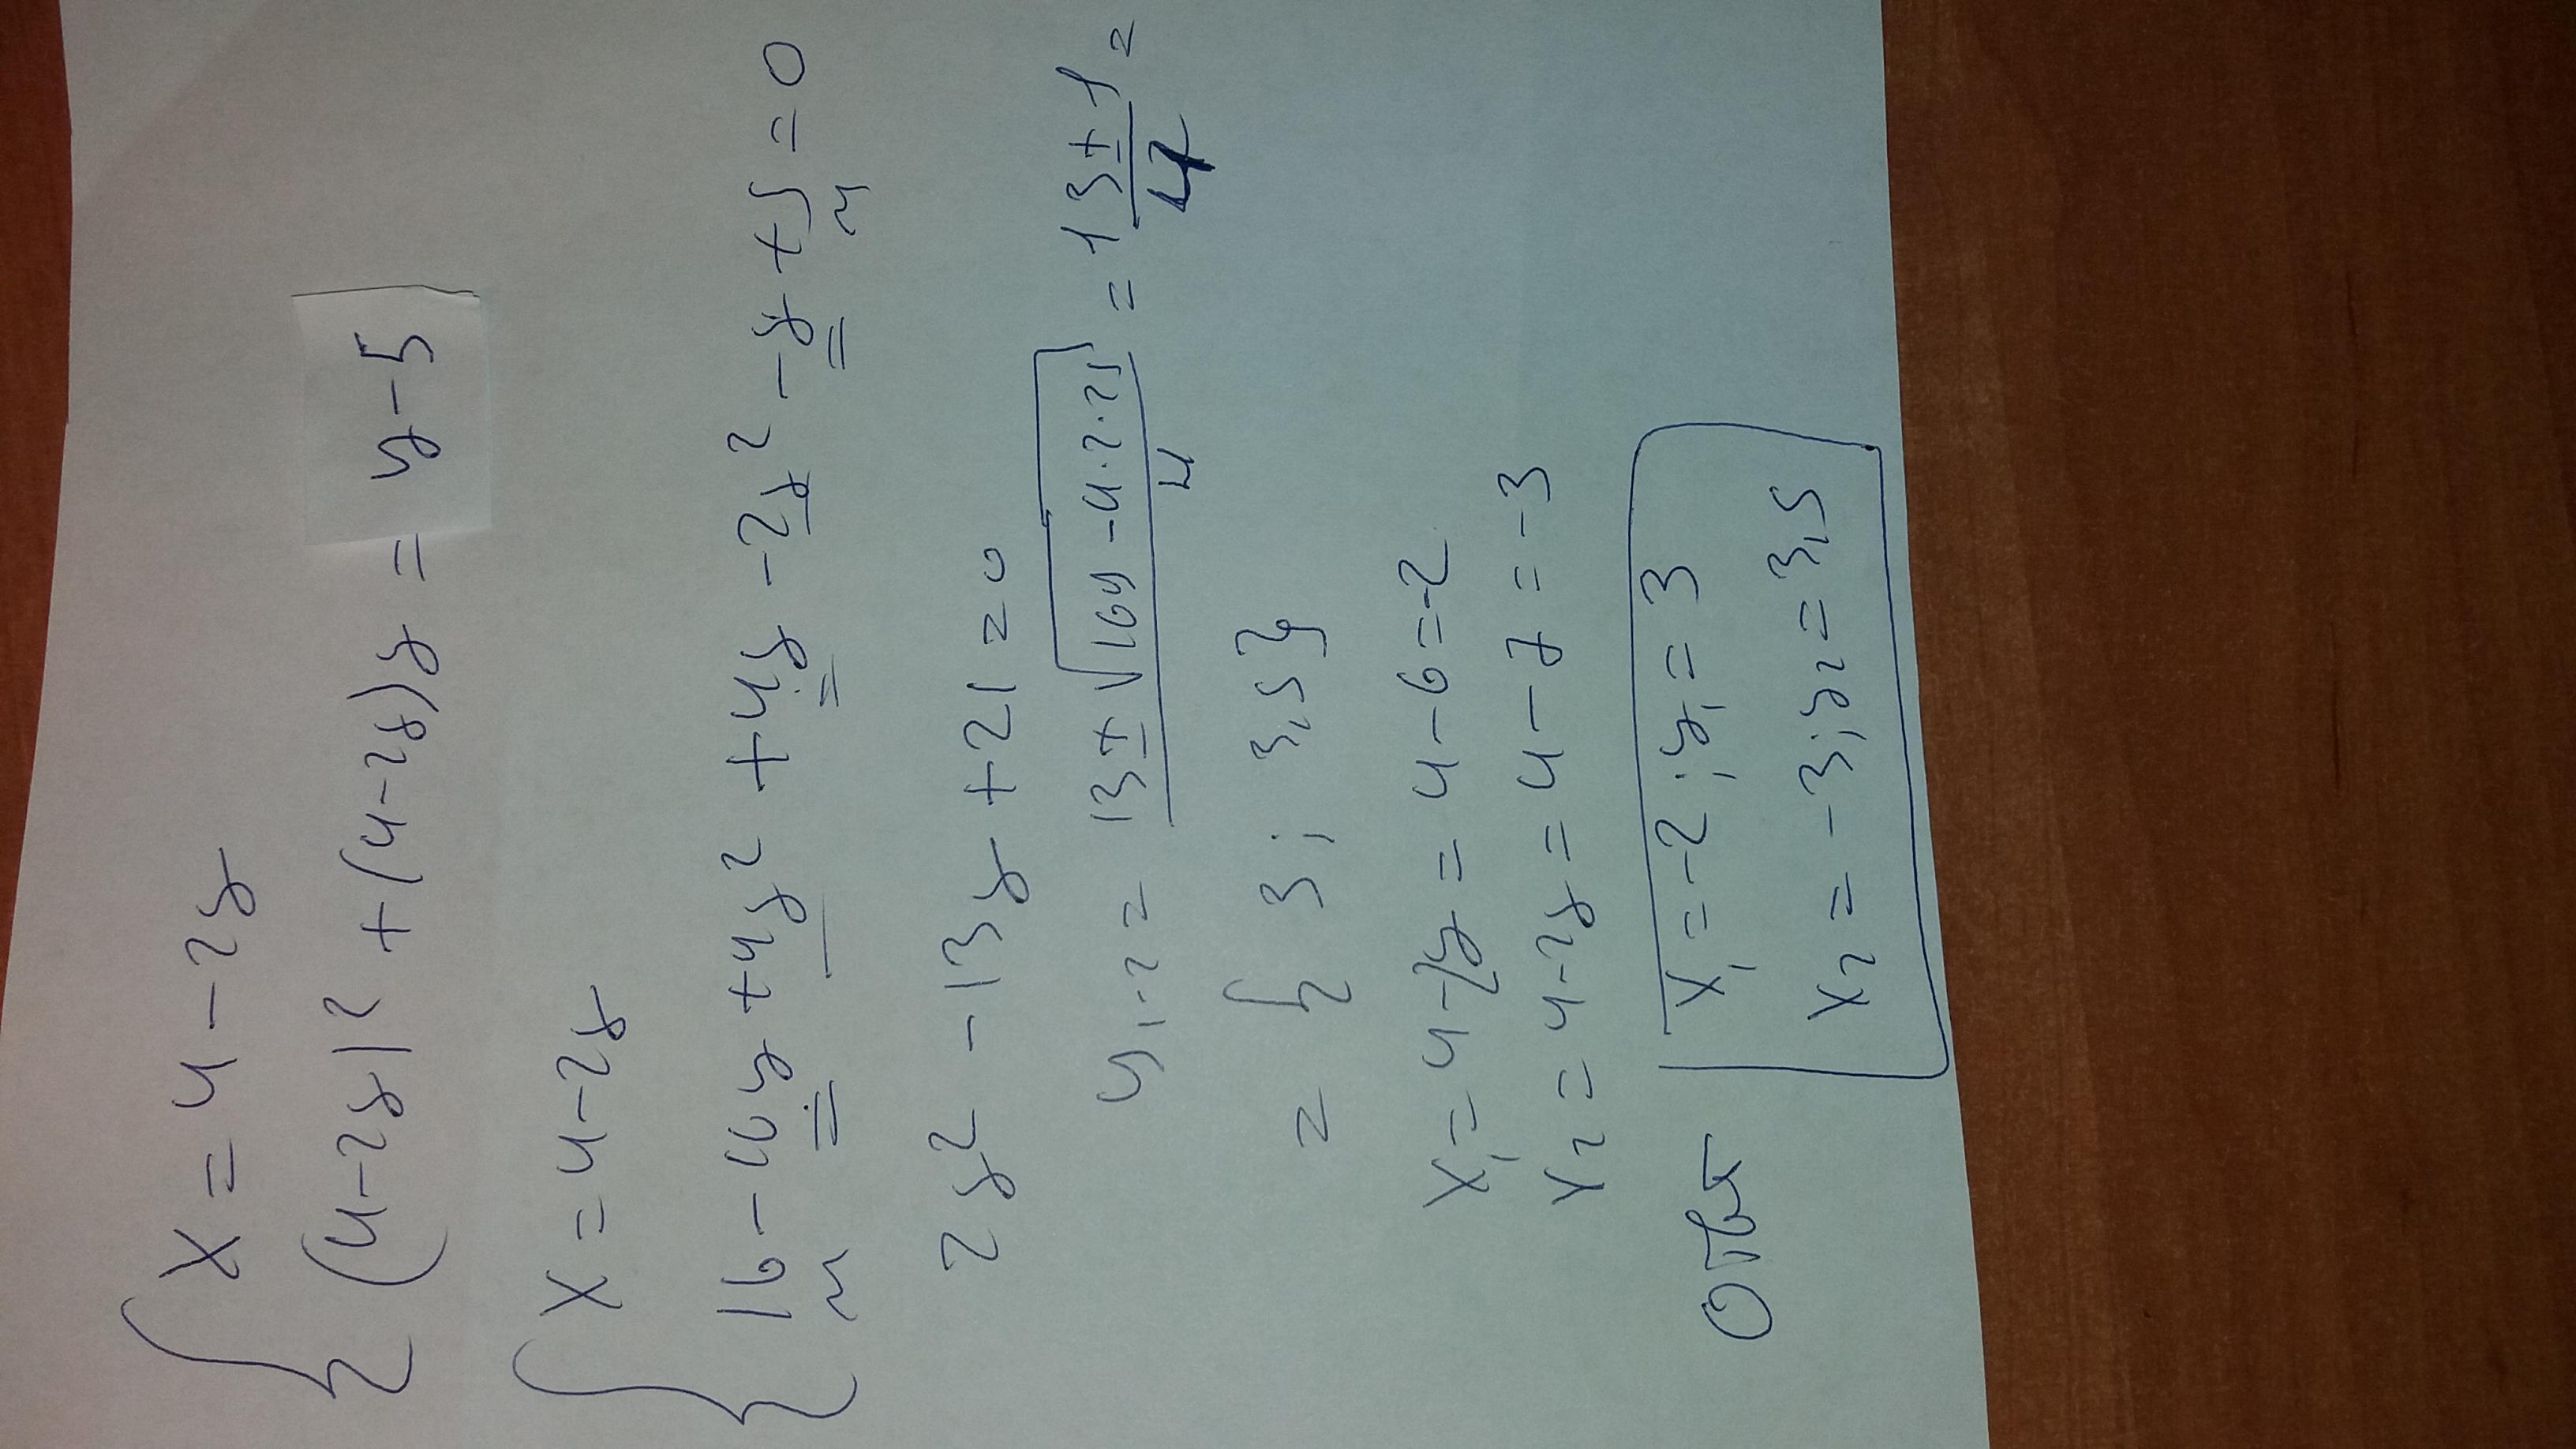 x = 4 - 2y
(4-2y)² + (4-2y)y = y-5
x = 4-2y
16 - 16y + 4y² + 4y - 2y² - y + 5 = 0
2y² - 13y + 21 = 0
y₁,₂ = (13 ± √(169 - 4·2·21))/4 = (13 ± 1)/4 =
= { 3; 3,5}
x₁ = 4-2y = 4-6 = -2
x₂ = 4-2y = 4-7 = -3
Ответ x₁ = -2; y₁ = 3
x₂ = -3; y₂ = 3,5